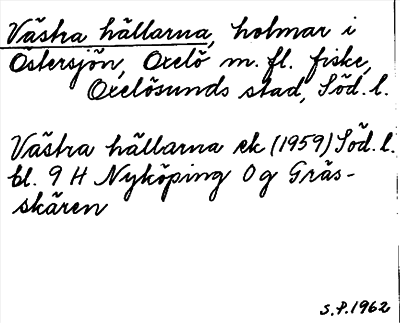 Västra hällarna, holmar i
Östersjön, Oxelö m. fl. fiske,
Oxelösunds stad, Söd. l.
Västra hällarna ek (1959) Söd. l.
bl. 9 H Nyköping 0 g Gräs-
skären
S.P. 1962